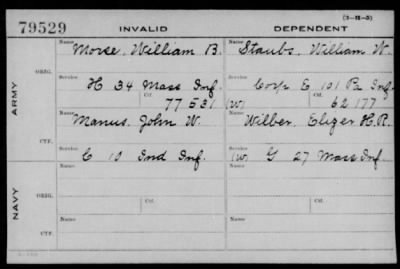 (3-11-5)
79529 INVALID DEPENDENT
Name Morse, William B. Name Staubs, William W.
ARMY
ORIG.
Service H 34 Mass Inf. Service Corp E 101 Pa Inf.
Ctf. 77531 (W) Ctf. 62177
Name Manus, John W. Name Wilber, H.R.
CTF.
Service C 10 Ind Inf. Service (W) G 27 Mass Inf.
NAVY
ORIG.
Name Ctf. Name Ctf.
CTF.
Name Name